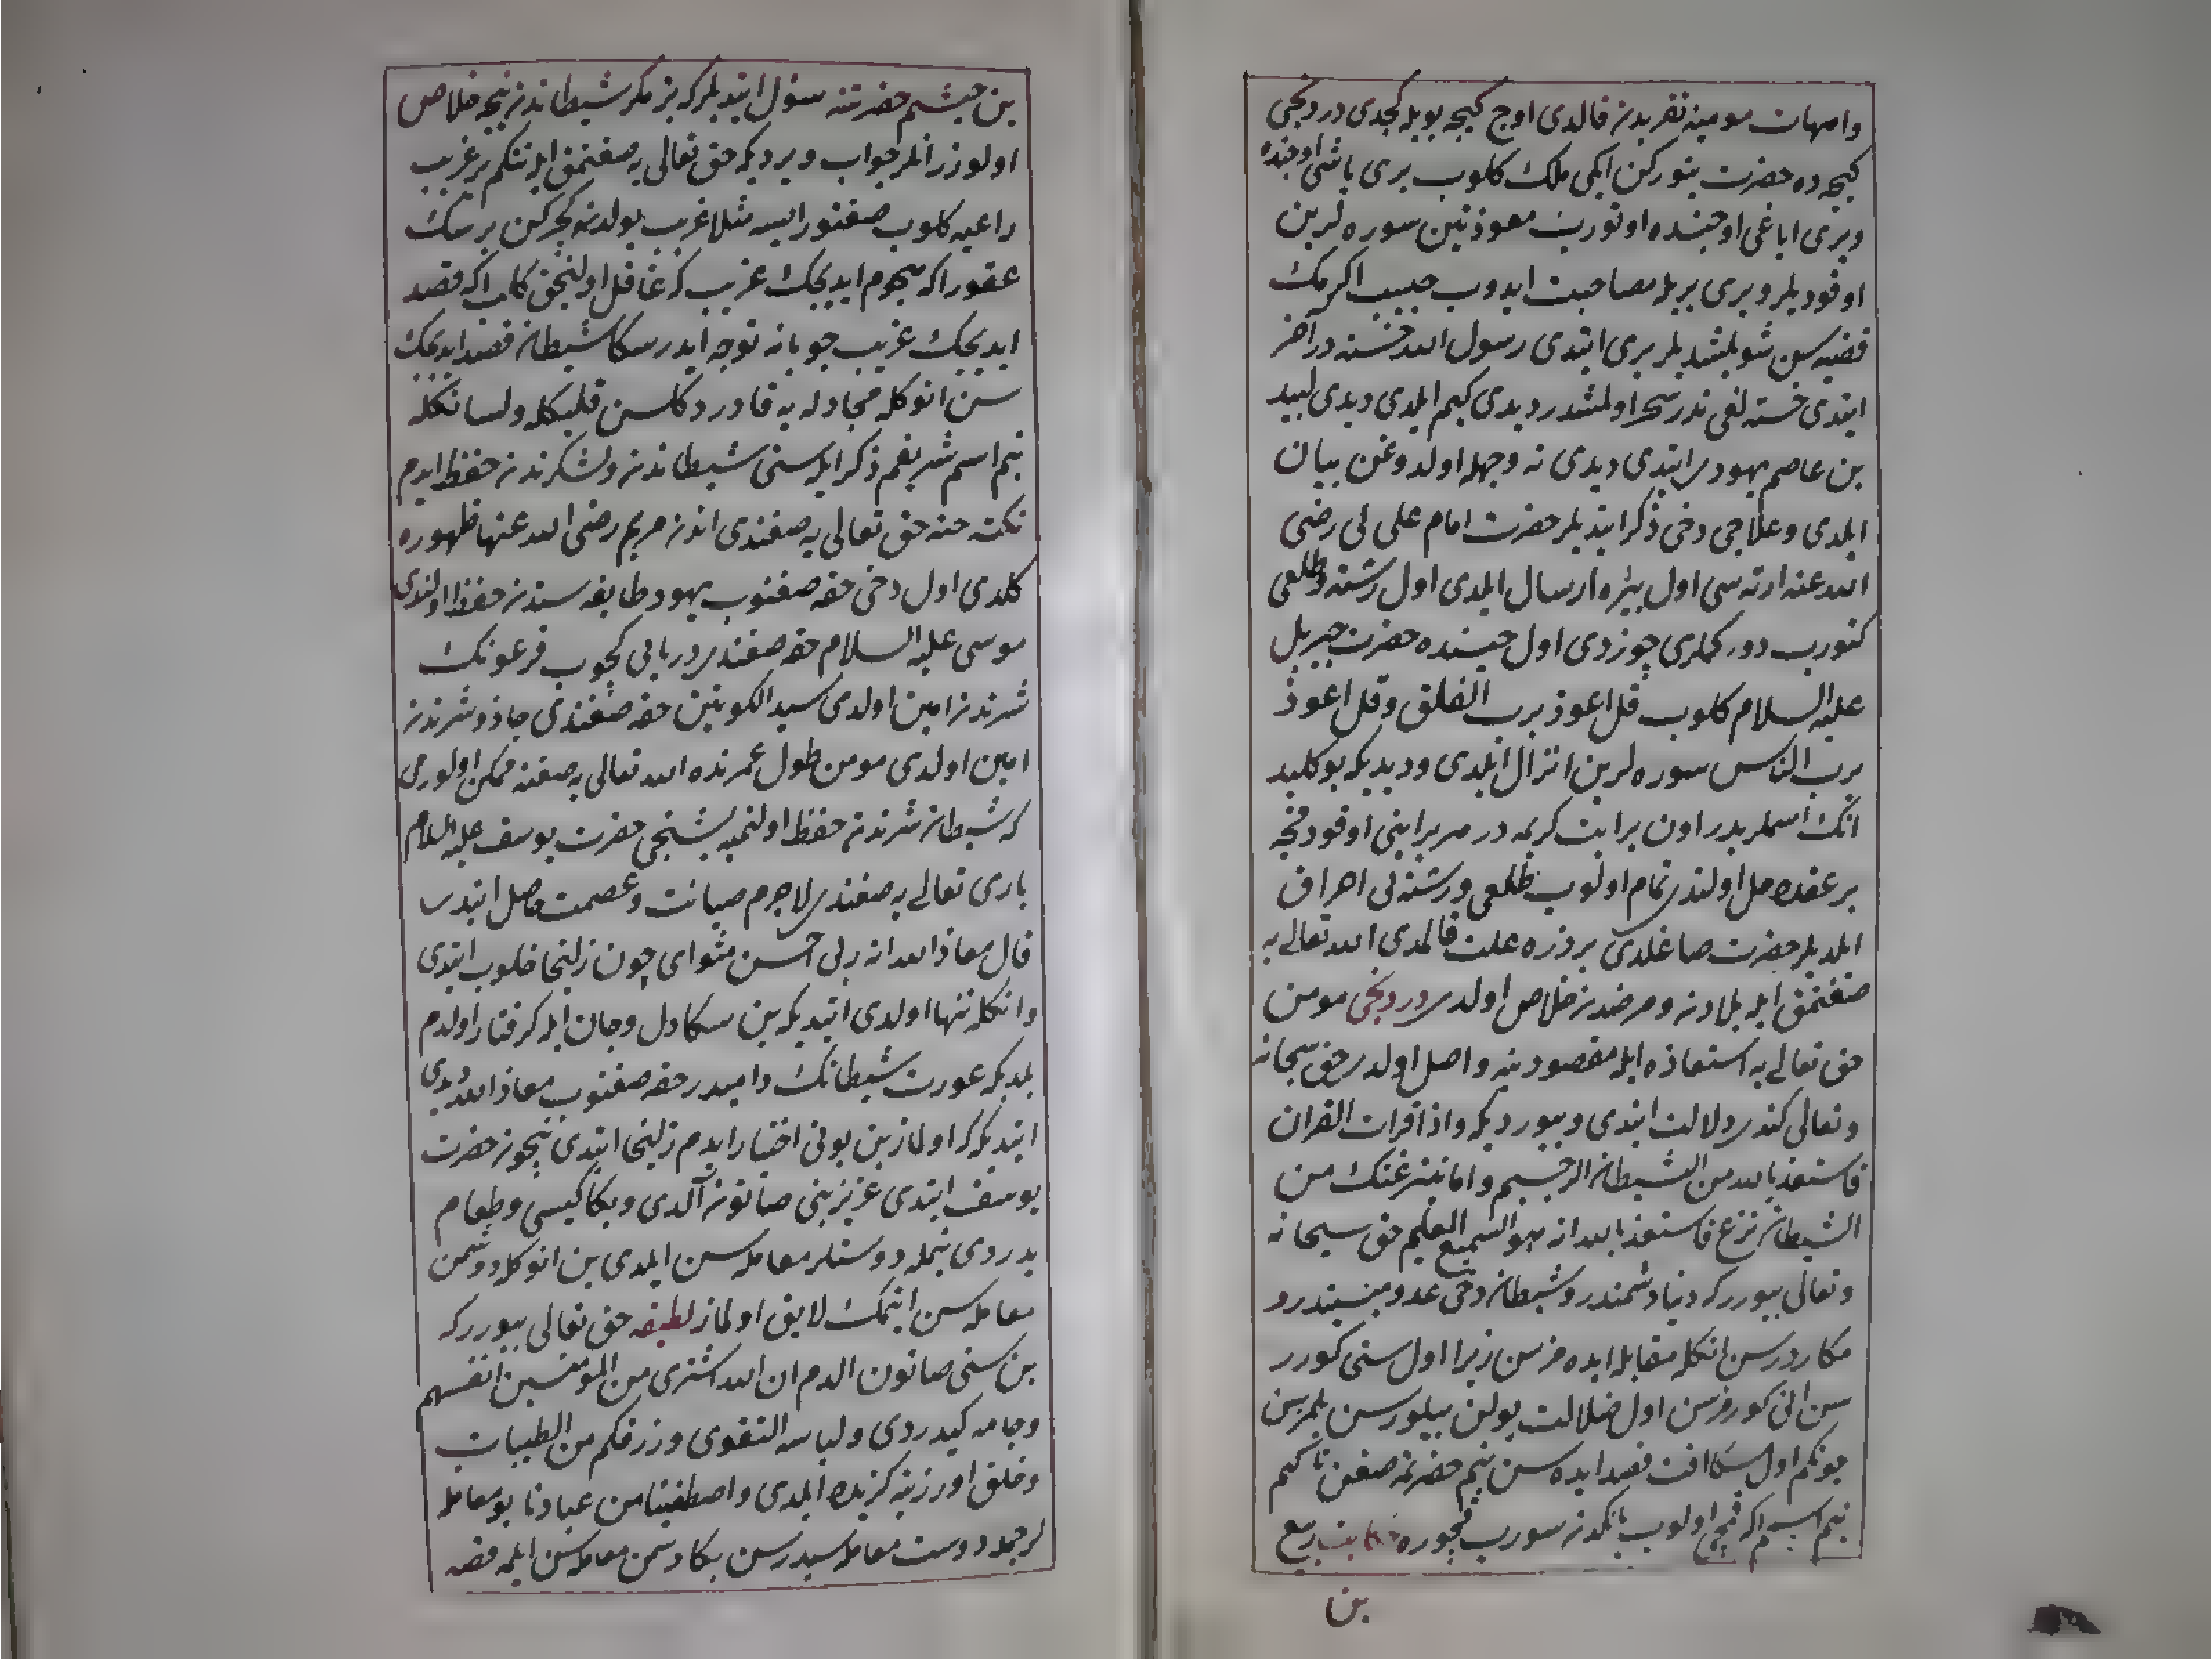 وامهات مومينه نفریدز قالدی اوچ کیجه بویله کجدی دردنجی
کیجه ده حضرت یتورکن ایکی ملک کلوب بری باشی اوجنده
وبری ایاغی اوجنده اوتورب معوذتین سوره لرین
اوقودیلر وبری بریله مصاحبت ایدوب حبیب اکرمک
قضیه سن شویلشدیلر بری ایتدی رسول الله خسته در آخر
ایتدی خسته لغی ندر سحر اولمشدر دیدی کیم ایلدی دیدی لبید
بن عاصم یهودی ایتدی دیدی نه وجهله اولدوغن بیان
ایلدی وعلاجی دخی ذکر ایتدیلر حضرت امام علی لی رضی
الله عنه ارته سی اول بیره ارسال ایلدی اول رشته وطلعی
کتورب دورکملری چوزدی اول حینده حضرت جبریل
علیه السلام کلوب قل اعوذ برب الفلق وقل اعوذ
برب الناس سوره لرین انزال ایلدی ودیدیکه بو کلید
انک اسملریدر اون بر ایت کریمه در هر بر ایتی اوقودقجه
بر عقده حل اولندی تمام اولوب طلعی ورشته لی احراق
ایلدیلر حضرت صاغلدی بر ذره علت قالمدی الله تعالی یه
صغنمق ایله بلادنه ومرضدنه خلاص اولدی دردنجی مومن
حق تعالی یه استعاذه ایله مقصودینه واصل اولدی حق سبحانه
وتعالی کندی دلالت ایتدی وبیوردیکه واذا قرات القران
فاستعذ بالله من الشیطان الرجیم واما ینزغنک من
الشیطان نزغ فاستعذ بالله انه هو السمیع العلیم حق سبحانه
وتعالی بیوررکه دنیا دشمندر وشیطان دخی عدو مبیندرو
مکاردر سن انکله مقابله ایده مزسن زیرا اول سنی کورر
سن انی کورمزسن اول ضلالت یولن بیلور سن بلمزسن
چونکم اول سکا افت قصد ایده سن بنم حضرتمه صغن تا کیم
بنم اسمم اکه اولوب یانکدنه سورب قچوره حکایت ربیع
بن
بن خیثم حضرتنه سؤل ایتدیلرکه بز مکر شیطاندنه نیجه خلاص
اولوزز انلر جواب ویردیکه حق تعالی یه صغنمق ایله نتکم بر غریب
راعیه کلوب صغنور ایسه مثلا غریب یولدنه کچرکن بر سک
عقور اکه هجوم ایدیجک غریب که غافل اولنجق کلب اکه قصد
ایدیجک غریب جوبانه توجه ایدر سکا شیطان قصد ایدیجک
سن انوکله مجادله یه قادر دکلسن قلبکله ولسانکله
بنم اسم شریفم ذکر ایله سنی شیطاندنه ولشکرندنه حفظ ایدم
نکته حنه حق تعالی یه صغندی اندنه مریم رضی الله عنها ظهوره
کلدی اول دخی حقه صغنوب یهود طایفه سندنه حفظ اولندی
موسی علیه السلام حقه صغندی دریایی کچوب فرعونک
شرندنه امین اولدی سید الکونین حقه صغندی جاذو شرندنه
امین اولدی مومن طول عمرنده الله تعالی یه صغنه ممکن اولورمی
که شیطان شرندنه حفظ اولنمیه بشنجی حضرت یوسف علیه السلام
باری تعالی یه صغندی لاجرم صیانت وعصمت حاصل ایتدی
قال معاذ الله انه ربی احسن مثوای چون زلیخا خلوب ایتدی
وانکله تنها اولدی ایتدیکه بن سکا دل وجان ایله کرفتار اولدم
بلدیکه عورت شیطانک دامیدر حقه صغنوب معاذ الله دیدی
ایتدیکرکه اولماز بن بونی اختیار ایدم زلیخا ایتدی نیچون حضرت
یوسف ایتدی عزیز بنی صاتون آلدی وبکا کیسی وطعام
یدردی بنمله دوستلر معامله سن ایلدی بن انوکله دوشمن
معامله سن ایتمک لایق اولماز لطیفه حق تعالی بیوررکه
بن سنی صاتون الدم ان الله اشتری من المؤمنین انفسهم
وجامه کیدردی ولباس التقوی ورزقکم من الطیبات
وخلق اورزینه کزیده ایلدی واصطفینا من عبادنا بو معامله
لر جمله دوست معامله سیدر سن بکا دشمن معامله سن ایلمه قصه